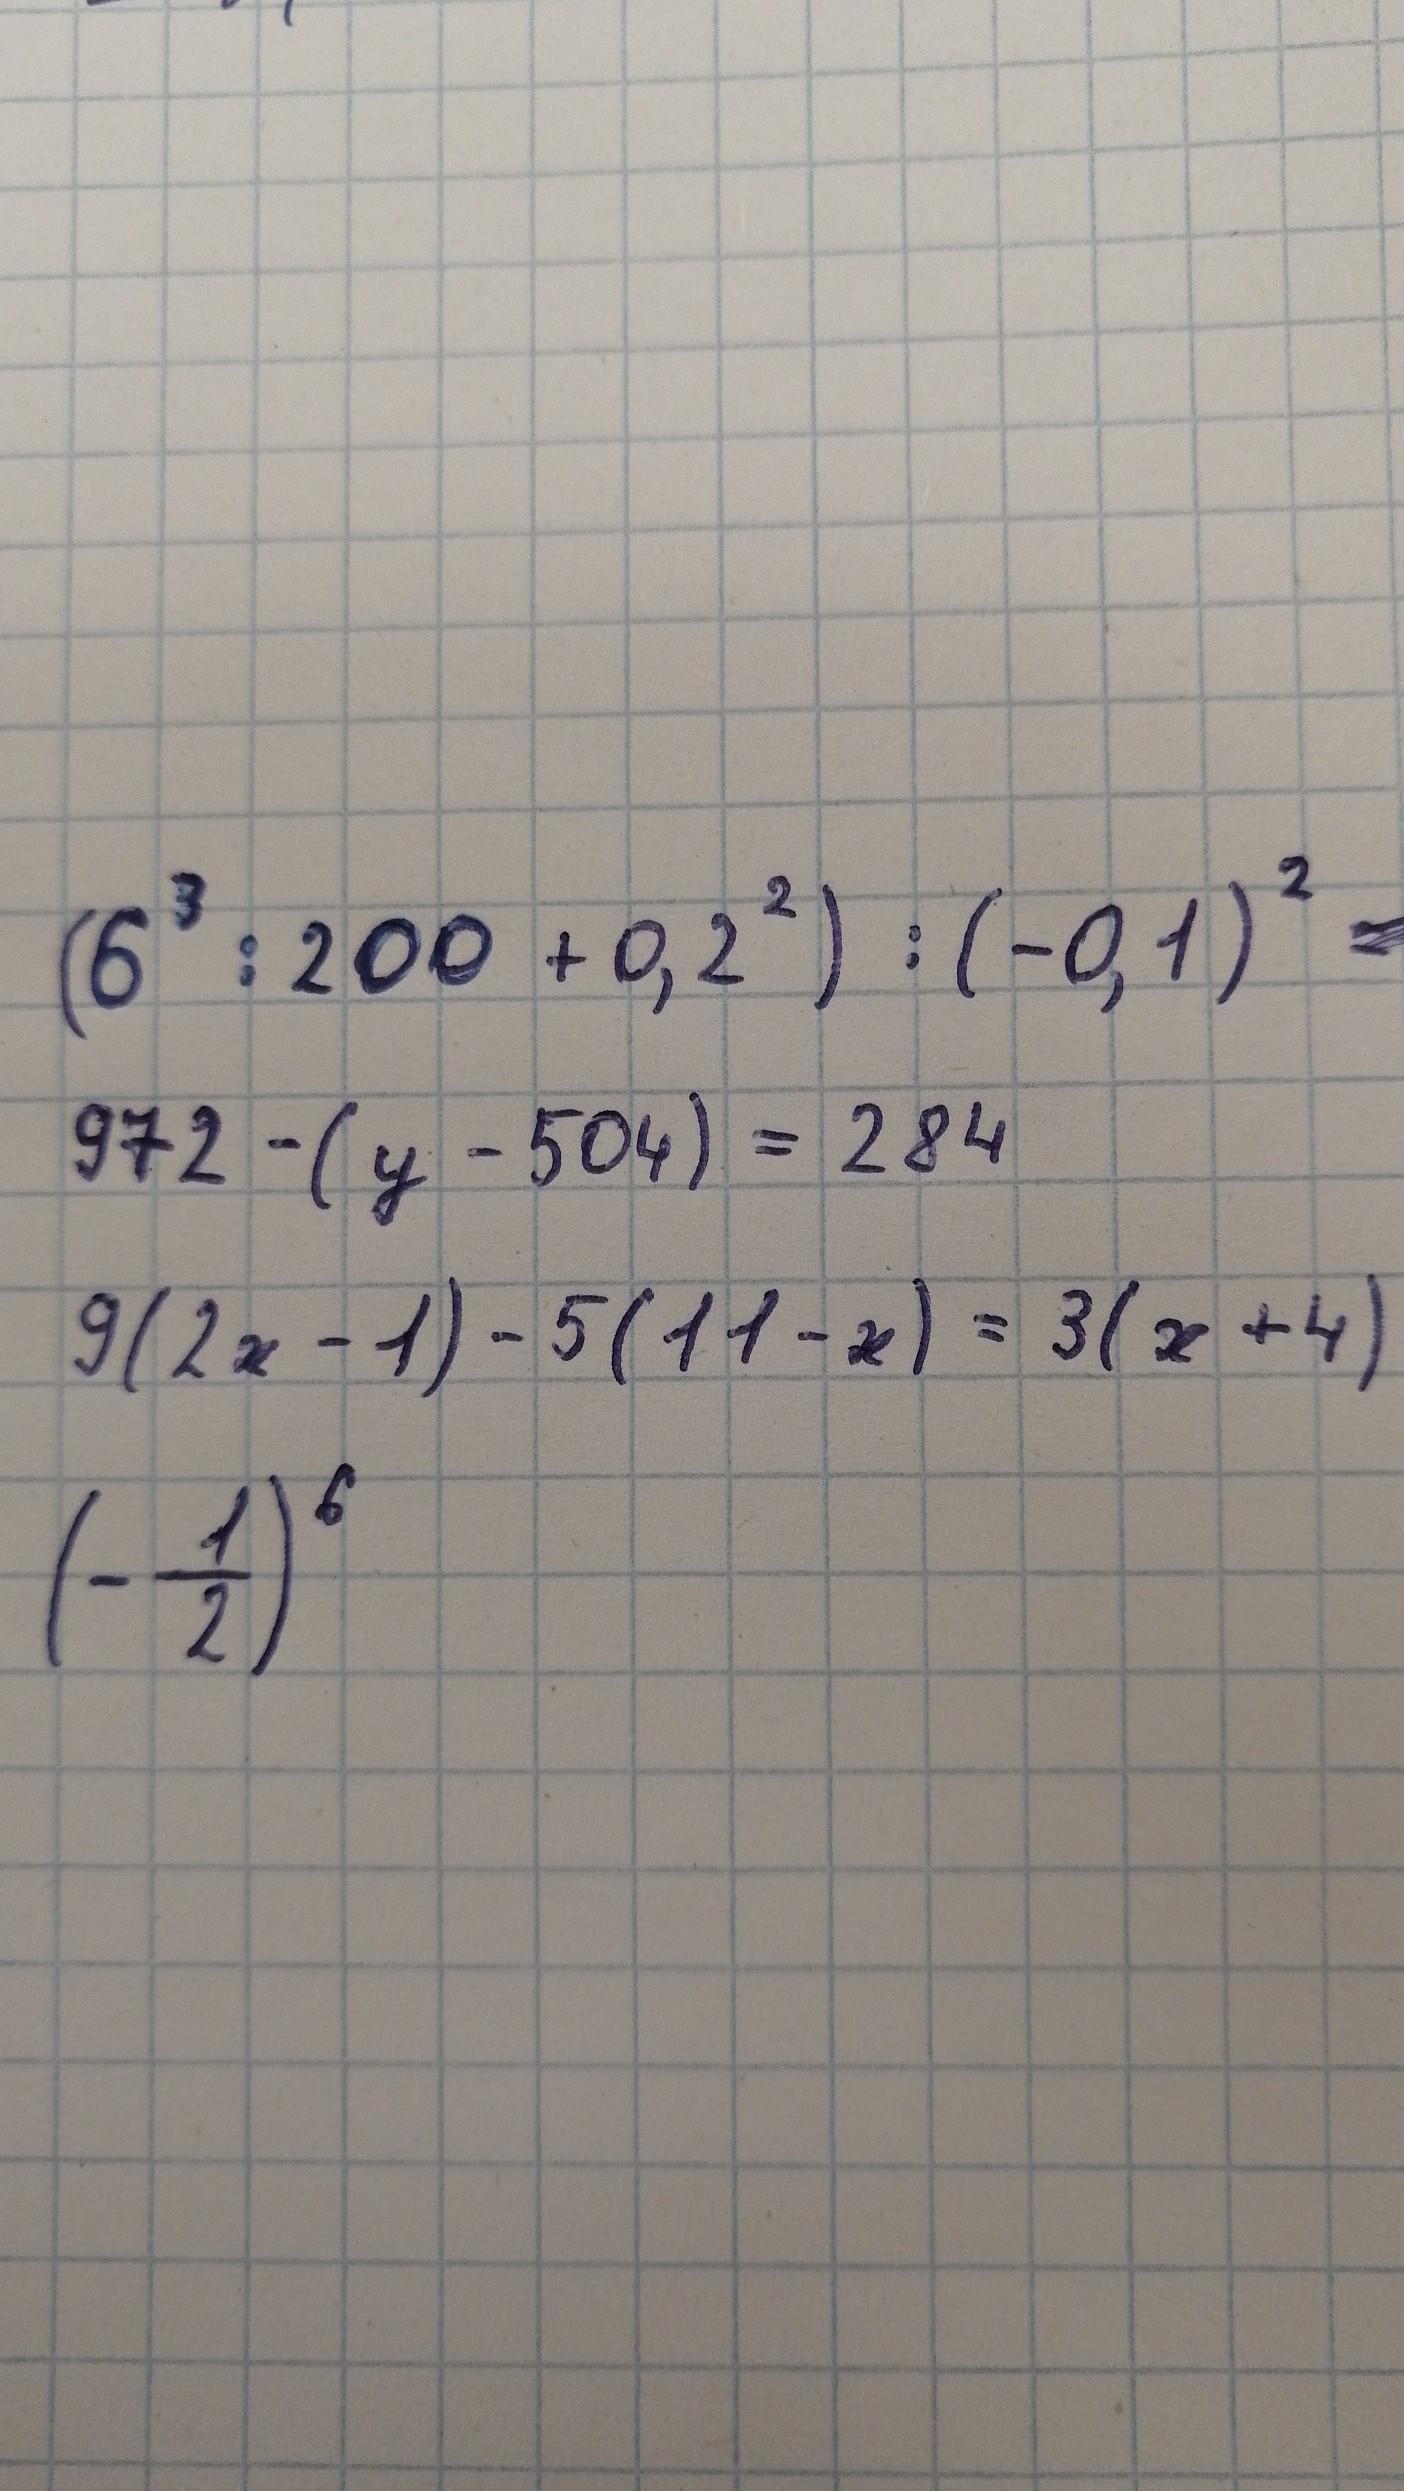 (6³ : 200 + 0,2²) : (-0,1)² =
972 - (y - 504) = 284
9(2x - 1) - 5(11 - x) = 3(x + 4)
(-1/2)⁶